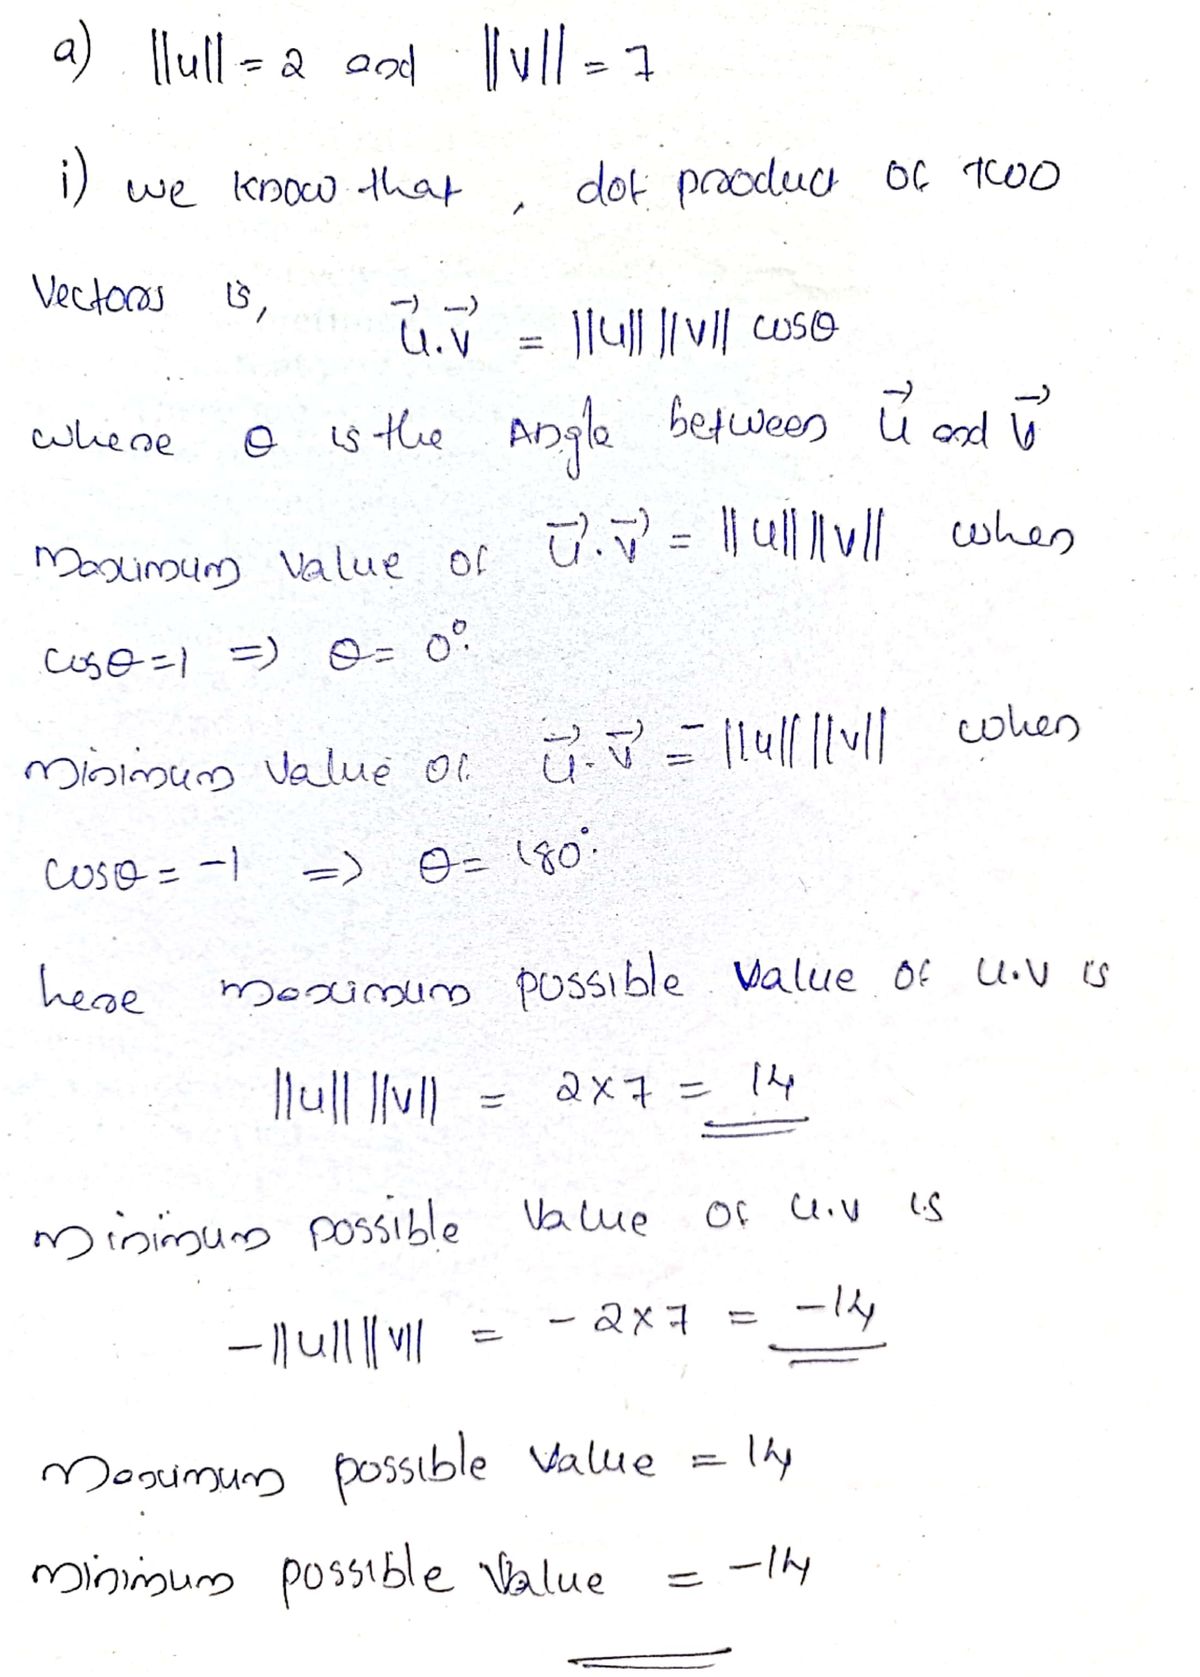 a) ||u|| = 2 and ||v|| = 7
i) we know that , dot product of two
Vectors is,
u⃗.v⃗ = ||u|| ||v|| cosθ
where θ is the Angle between u⃗ and v⃗
Maximum Value of u⃗.v⃗ = ||u|| ||v|| when
cosθ=1 => θ= 0°.
minimum Value of u⃗.v⃗ = -||u|| ||v|| when
cosθ = -1 => θ= 180°.
here maximum possible Value of u.v is
||u|| ||v|| = 2×7 = 14
minimum possible Value of u.v is
-||u|| ||v|| = -2×7 = -14
Maximum possible Value = 14
minimum possible Value = -14